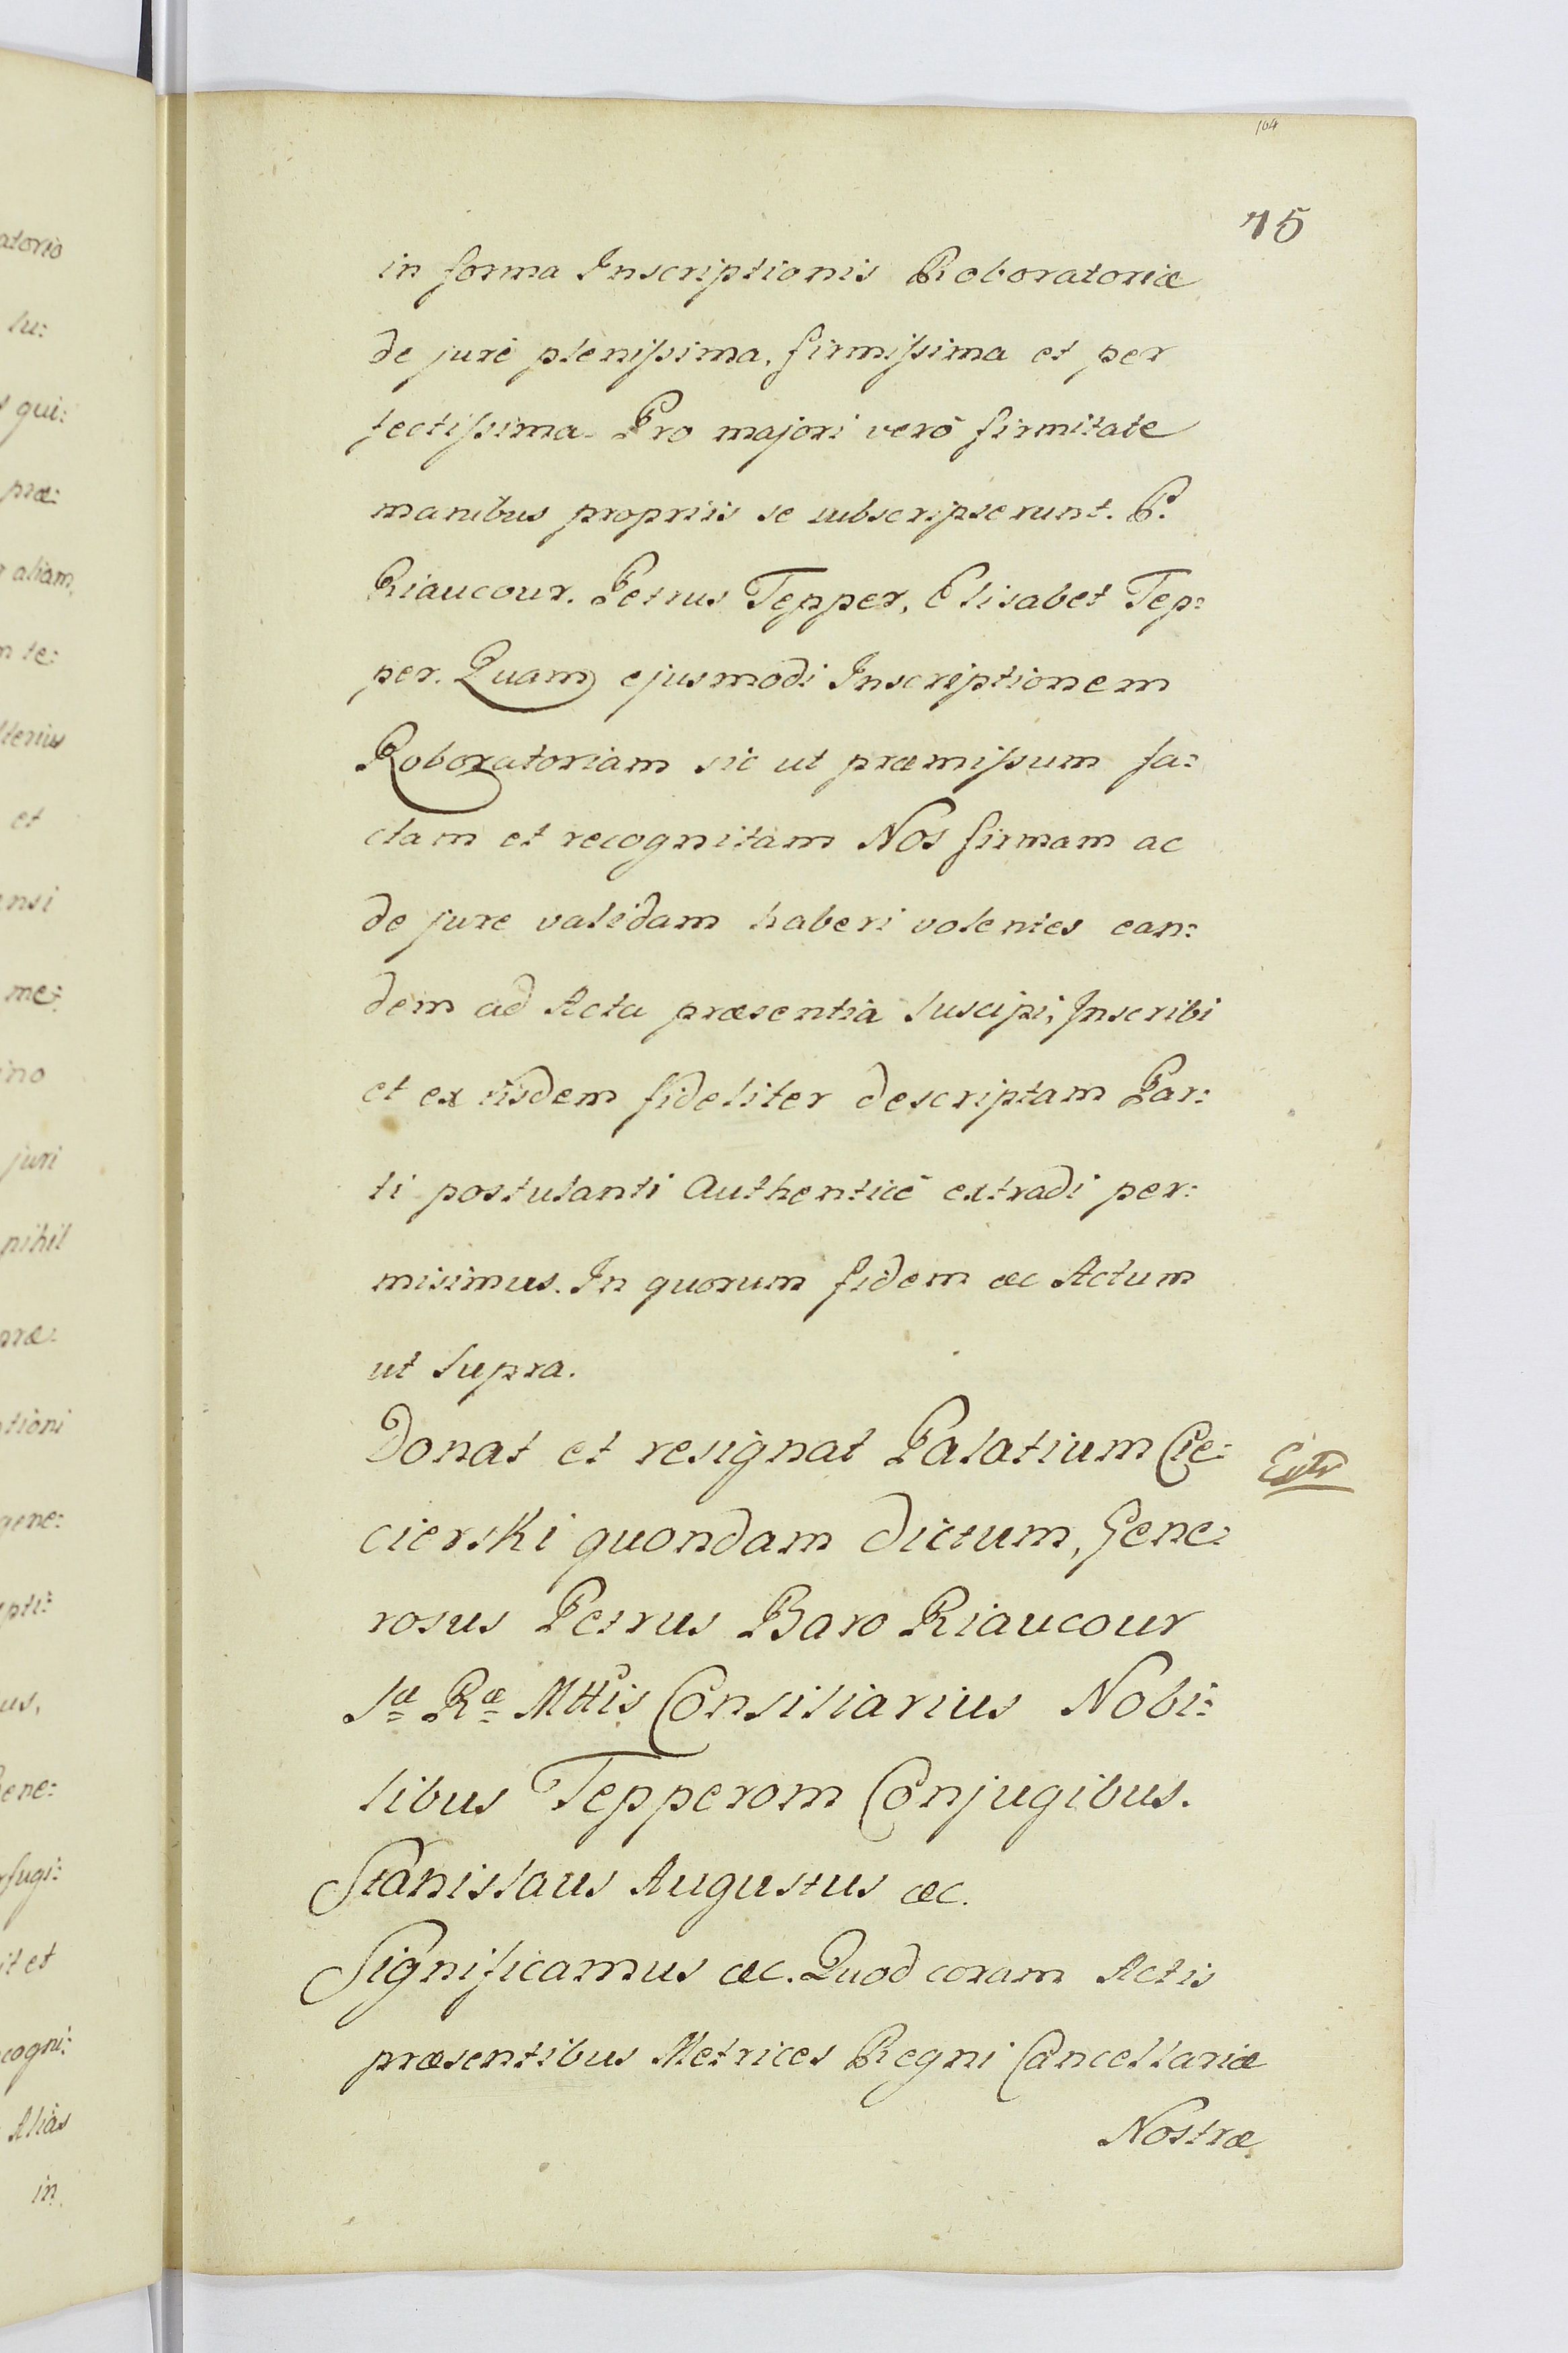 104
75
in forma Inscriptionis Roboratoriæ
de jurè plenissima, firmissima et per
fectissima. Pro majori verò firmitate
manibus propriis se subscripserunt. P.
Riaucour. Petrus Tepper, Elisabet Tep:
per. Quam ejusmodi Inscriptionem
Roboratoriam sic ut præmissum fa:
ctam et recognitam Nos firmam ac
de jure validam haberi volentes ean:
dem ad Acta præsentia suscipi, Inscribi
et ex iisdem fideliter descriptam Par:
ti postulanti Authenticè extradi per:
misimus. In quorum fidem &c Actum
ut supra.
Donat et resignat Palatium Cie:
cierski quondam dictum, Gene:
rosus Petrus Baro Riaucour
Sæ Ræ Mttis Consiliarius Nobi:
libus Tepperom Conjugibus.
Extr
Stanislaus Augustus &c.
Significamus &c. Quod coram Actis
præsentibus Metrices Regni Cancellariæ
Nostræ
atorio
lu:
qui:
præ:
aliam
te:
et
me:
juri
nihil
gene:
cogni:
Alias
in